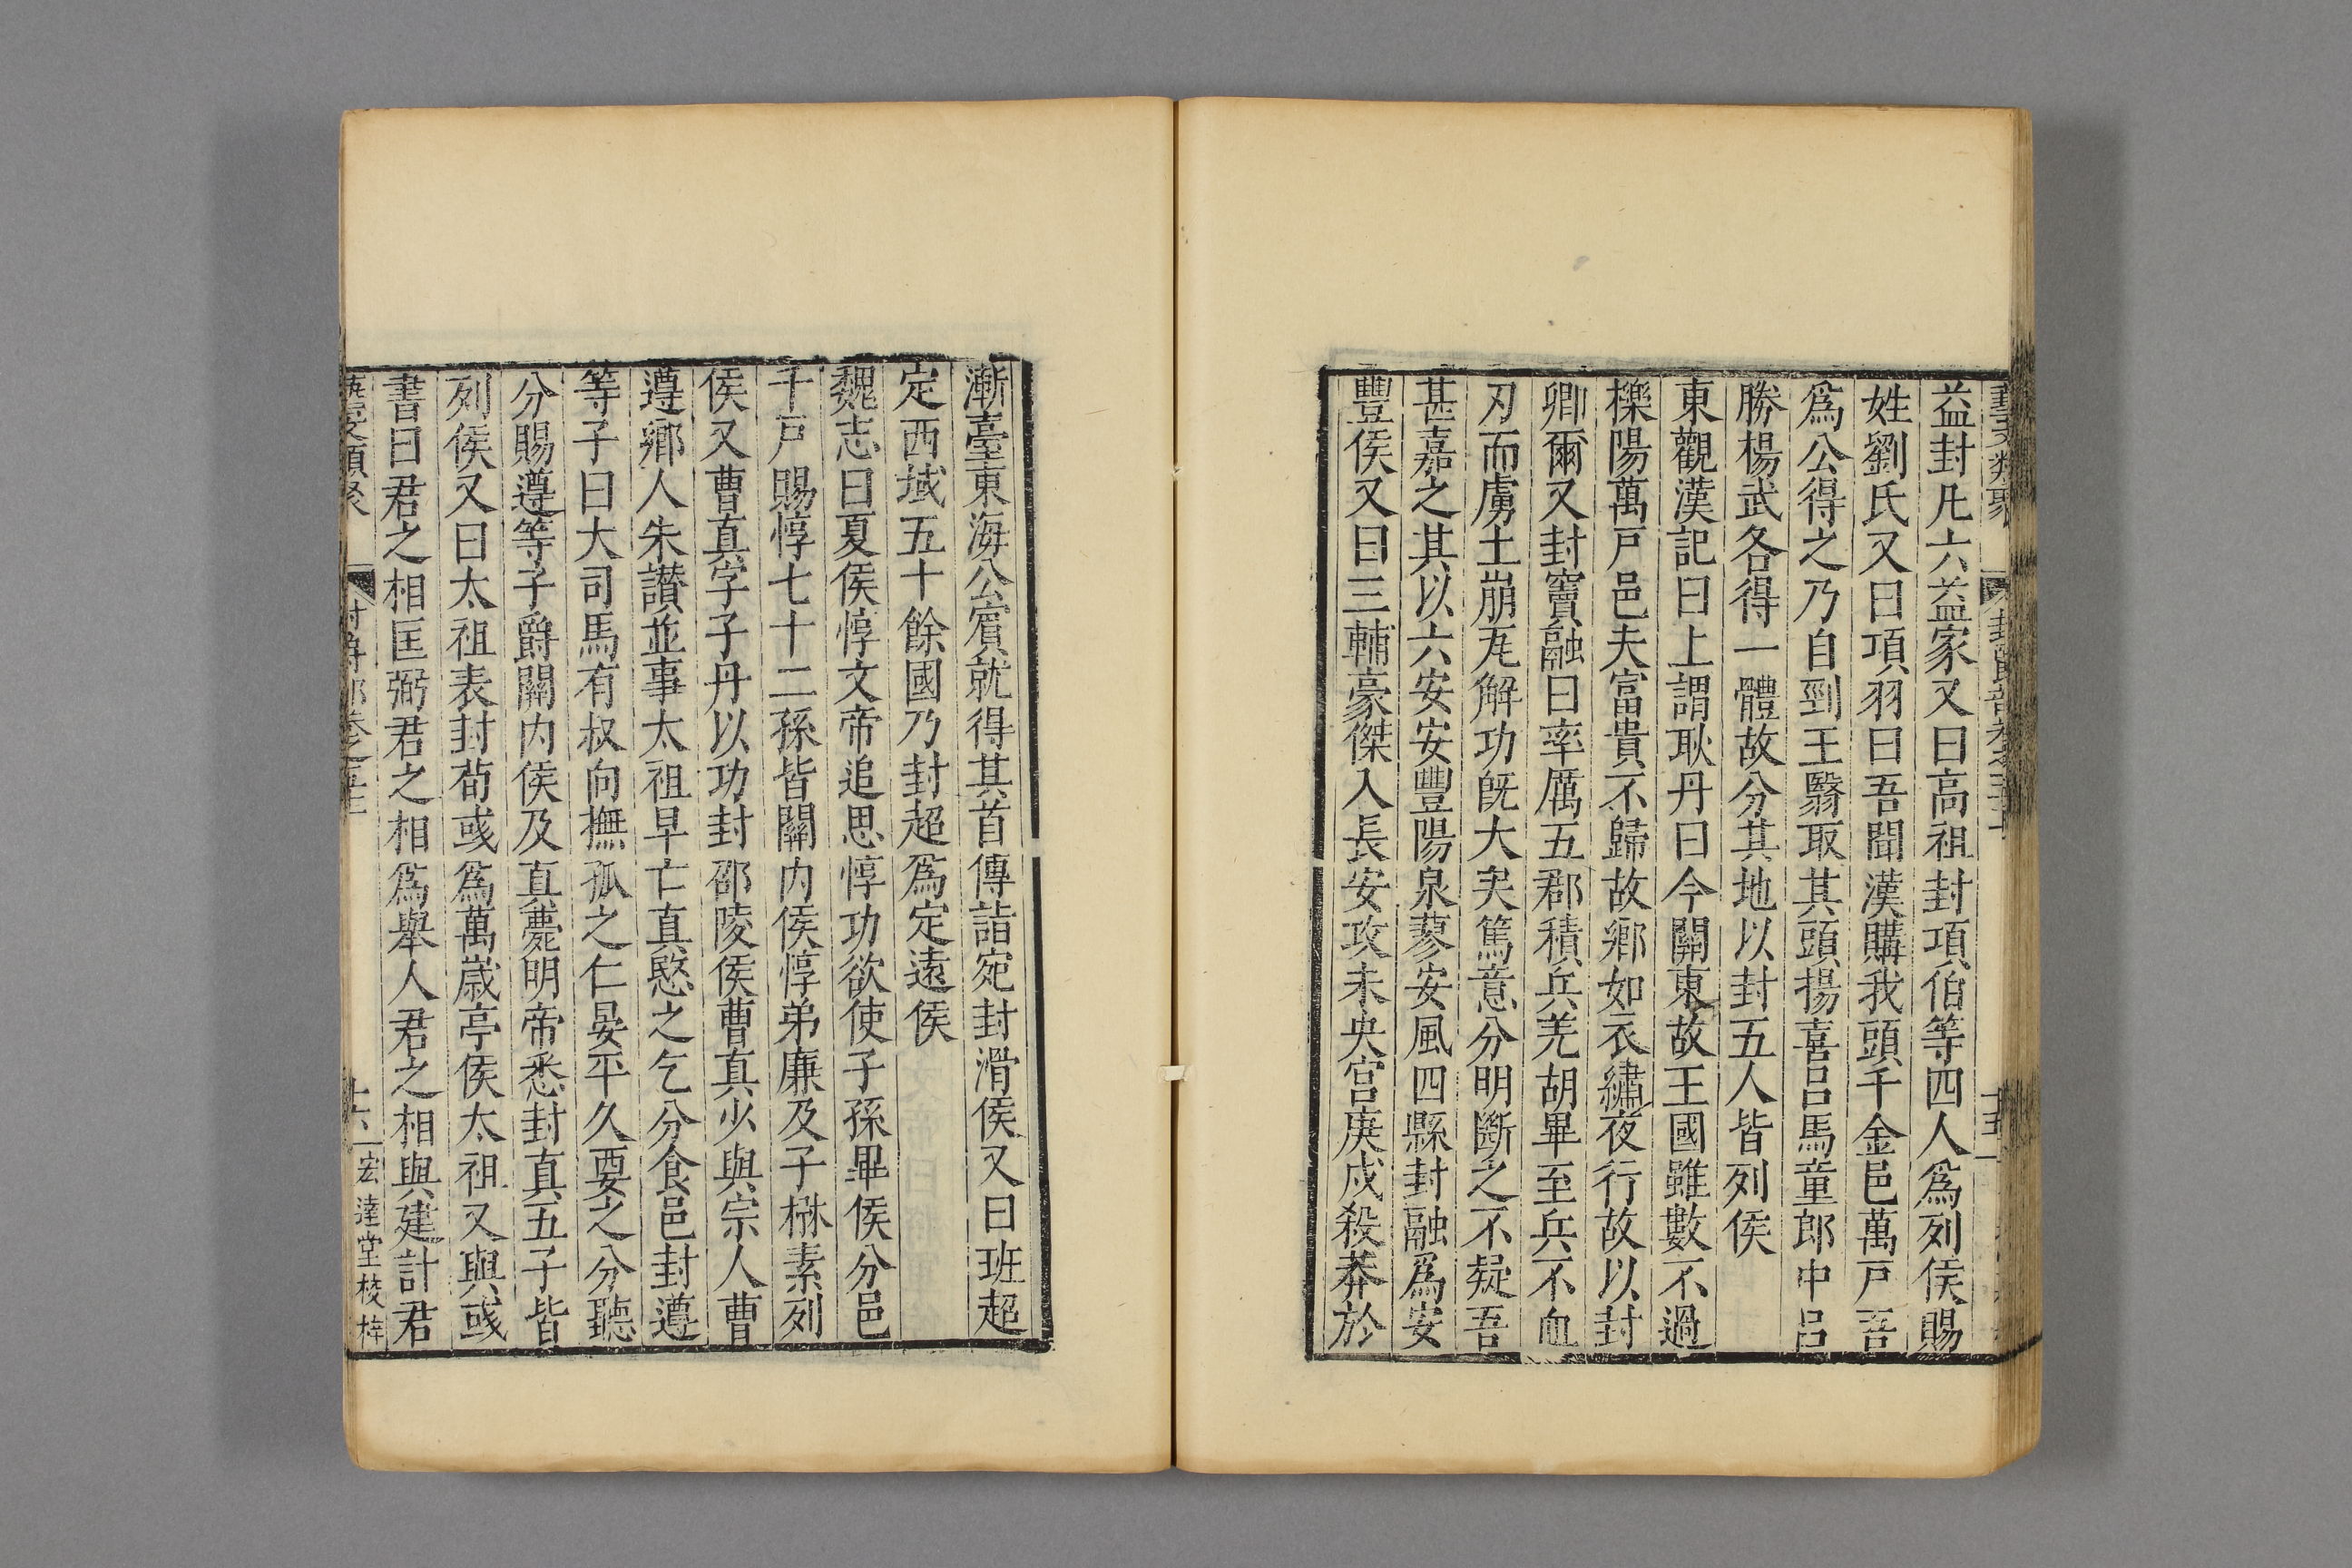 益封凡六益家又曰高祖封項伯等四人爲列侯賜
姓劉氏又曰項羽曰吾聞漢購我頭千金邑萬戸吾
爲公得之乃自剄王翳取其頭揚喜呂馬童郎中呂
勝楊武各得一體故分其地以封五人皆列侯
東觀漢記曰上謂耿丹曰今關東故王國雖數不過
櫟陽萬戸邑夫富貴不歸故鄉如衣繡夜行故以封
卿爾又封竇融曰率厲五郡積兵羌胡畢至兵不血
刃而虜土崩瓦解功旣大矣篤意分明斷之不疑吾
甚嘉之其以六安安豐陽泉蓼安風四縣封融爲安
豐侯又曰三輔豪傑入長安攻未央宫庚戌殺莽於
漸臺東海公賔就得其首傳詣宛封滑侯又曰班超
定西域五十餘國乃封超爲定遠侯
魏志曰夏侯惇文帝追思惇功欲使子孫畢侯分邑
千戸賜惇七十二孫皆關内侯惇弟廉及子楙素列
侯又曹真字子丹以功封邵陵侯曹真少與宗人曹
遵鄉人朱讃並事太祖早亡真愍之乞分食邑封遵
等子曰大司馬有叔向撫孤之仁晏平久要之分聽
分賜遵等子爵關内侯及真薨明帝悉封真五子皆
列侯又曰太祖表封荀彧爲萬歳亭侯太祖又與彧
書曰君之相匡弼君之相爲舉人君之相與建計君
藝文類聚 封爵部卷之五十一 宏達堂校梓